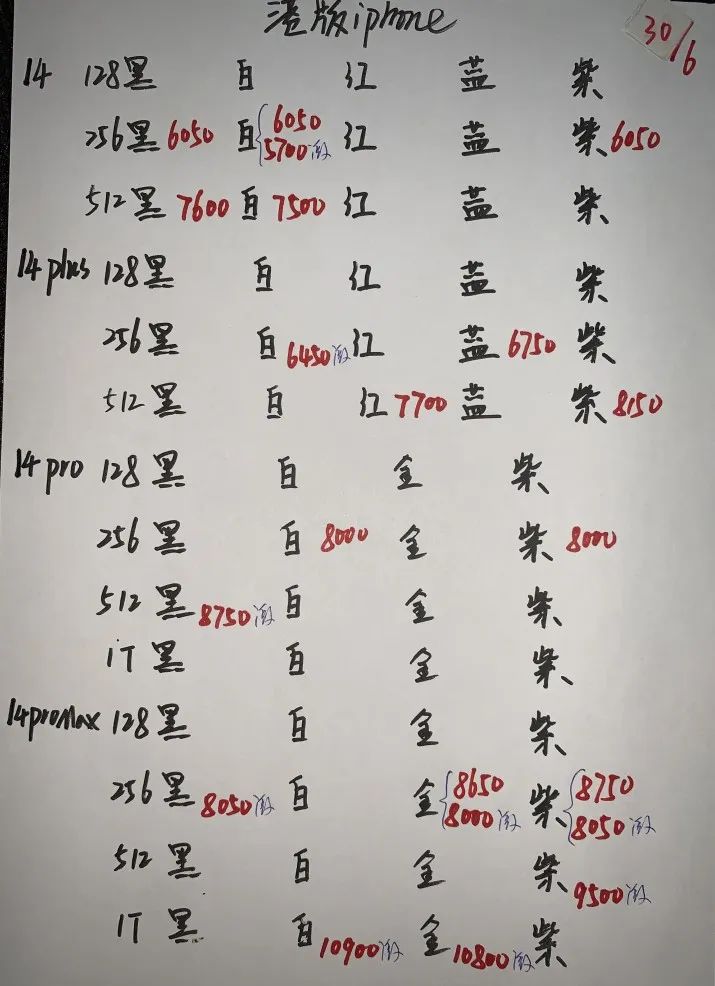 港版iphone
30/6
14 128黑 白 红 蓝 紫
256黑 6050 白 6050 5700激 红 蓝 紫 6050
512黑 7600 白 7500 红 蓝 紫
14plus 128黑 白 红 蓝 紫
256黑 白 6450激 红 蓝 6750 紫
512黑 白 红 7700 蓝 紫 8150
14pro 128黑 白 金 紫
256黑 白 8000 金 紫 8000
512黑 8750激 白 金 紫
1T黑 白 金 紫
14promax 128黑 白 金 紫
256黑 8050激 白 金 8650 8000激 紫 8750 8050激
512黑 白 金 紫 9500激
1T黑 白 10900激 金 10800激 紫